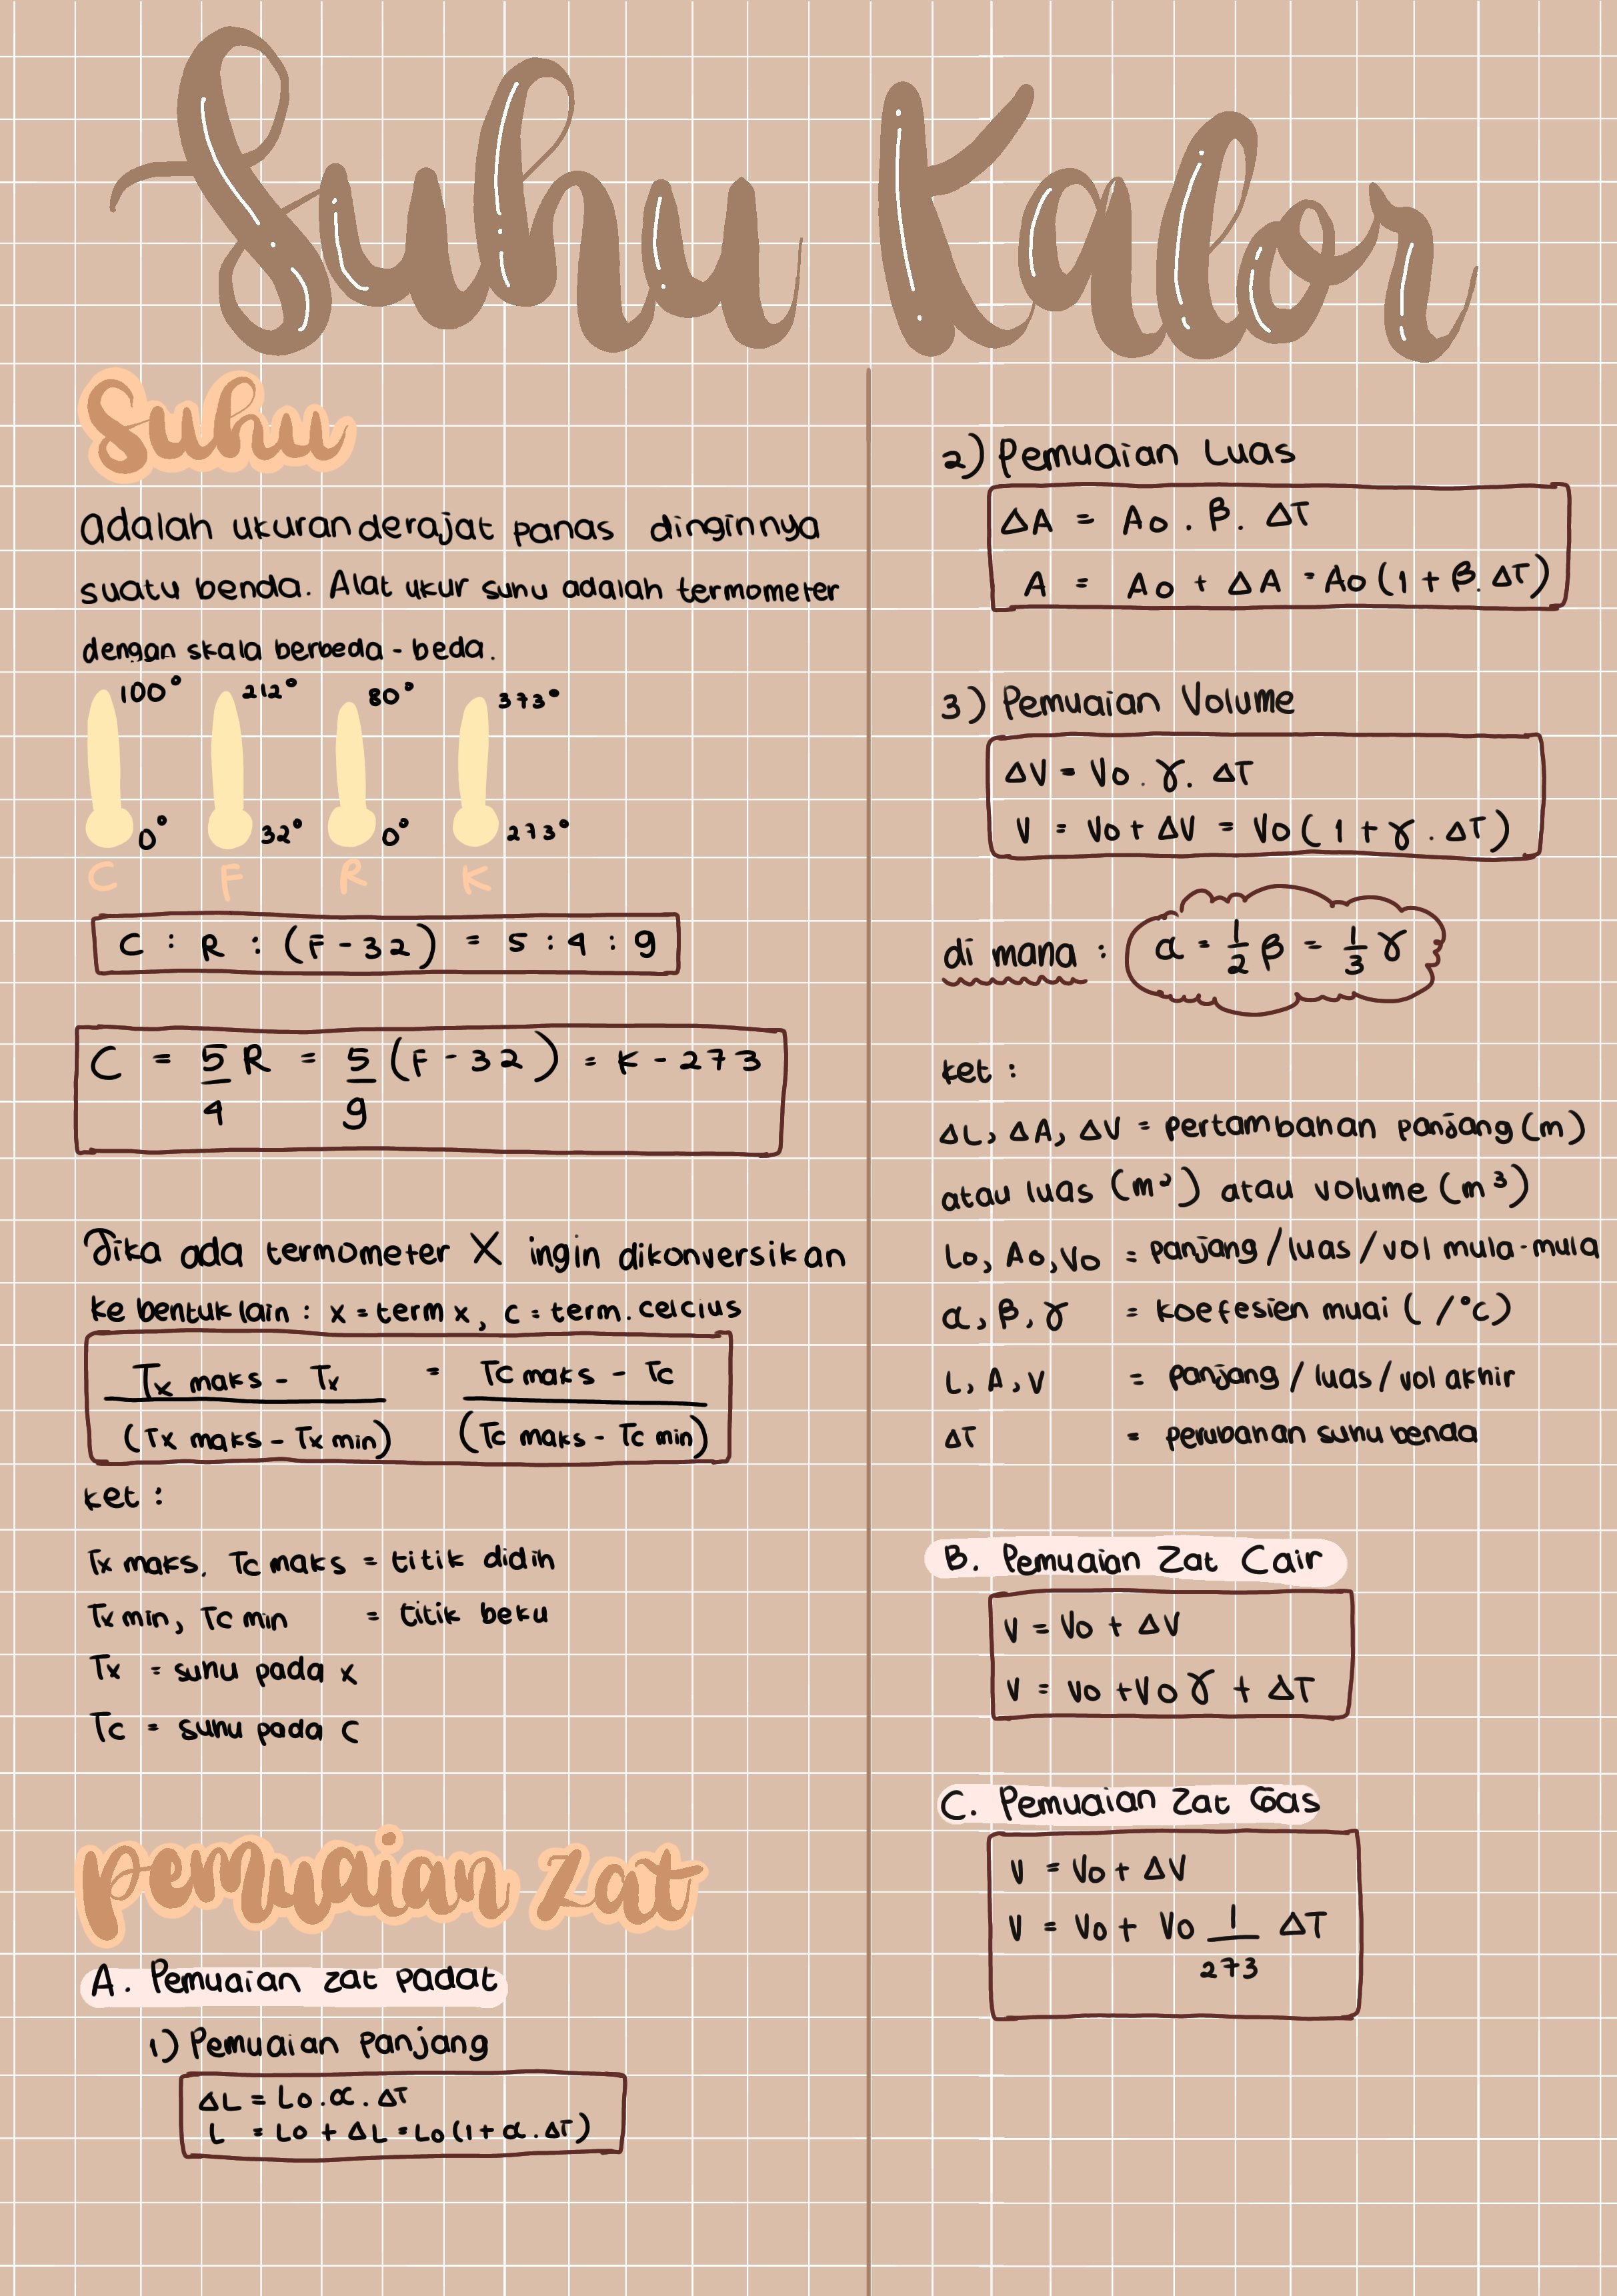 Suhu Kalor
Suhu
adalah ukuran derajat panas dinginnya
suatu benda. Alat ukur suhu adalah termometer
dengan skala berbeda - beda.
100° 212° 80° 373°
0° 32° 0° 273°
C F R K
C : R : (F - 32) = 5 : 4 : 9
C = 5/4 R = 5/9 (F - 32) = K - 273
Jika ada termometer X ingin dikonversikan
ke bentuk lain : x = term x, c = term. celcius
Tx maks - Tx = Tc maks - Tc
(Tx maks - Tx min) (Tc maks - Tc min)
ket :
Tx maks. Tc maks = titik didih
Tx min, Tc min = titik beku
Tx = suhu pada x
Tc = suhu pada C
pemuaian zat
A. Pemuaian zat padat
1) Pemuaian panjang
ΔL = Lo . α . ΔT
L = Lo + ΔL = Lo (1 + α . ΔT)
2) Pemuaian Luas
ΔA = Ao . β . ΔT
A = Ao + ΔA = Ao (1 + β . ΔT)
3) Pemuaian Volume
ΔV = Vo . γ . ΔT
V = Vo + ΔV = Vo (1 + γ . ΔT)
di mana : α = 1/2 β = 1/3 γ
ket :
ΔL, ΔA, ΔV = pertambahan panjang (m)
atau luas (m²) atau volume (m³)
Lo, Ao, Vo = panjang / luas / vol mula-mula
α, β, γ = koefesien muai ( /°c)
L, A, V = panjang / luas / vol akhir
ΔT = perubahan suhu benda
B. Pemuaian Zat Cair
V = Vo + ΔV
V = Vo + Vo γ + ΔT
C. Pemuaian Zat Gas
V = Vo + ΔV
V = Vo + Vo 1/273 ΔT